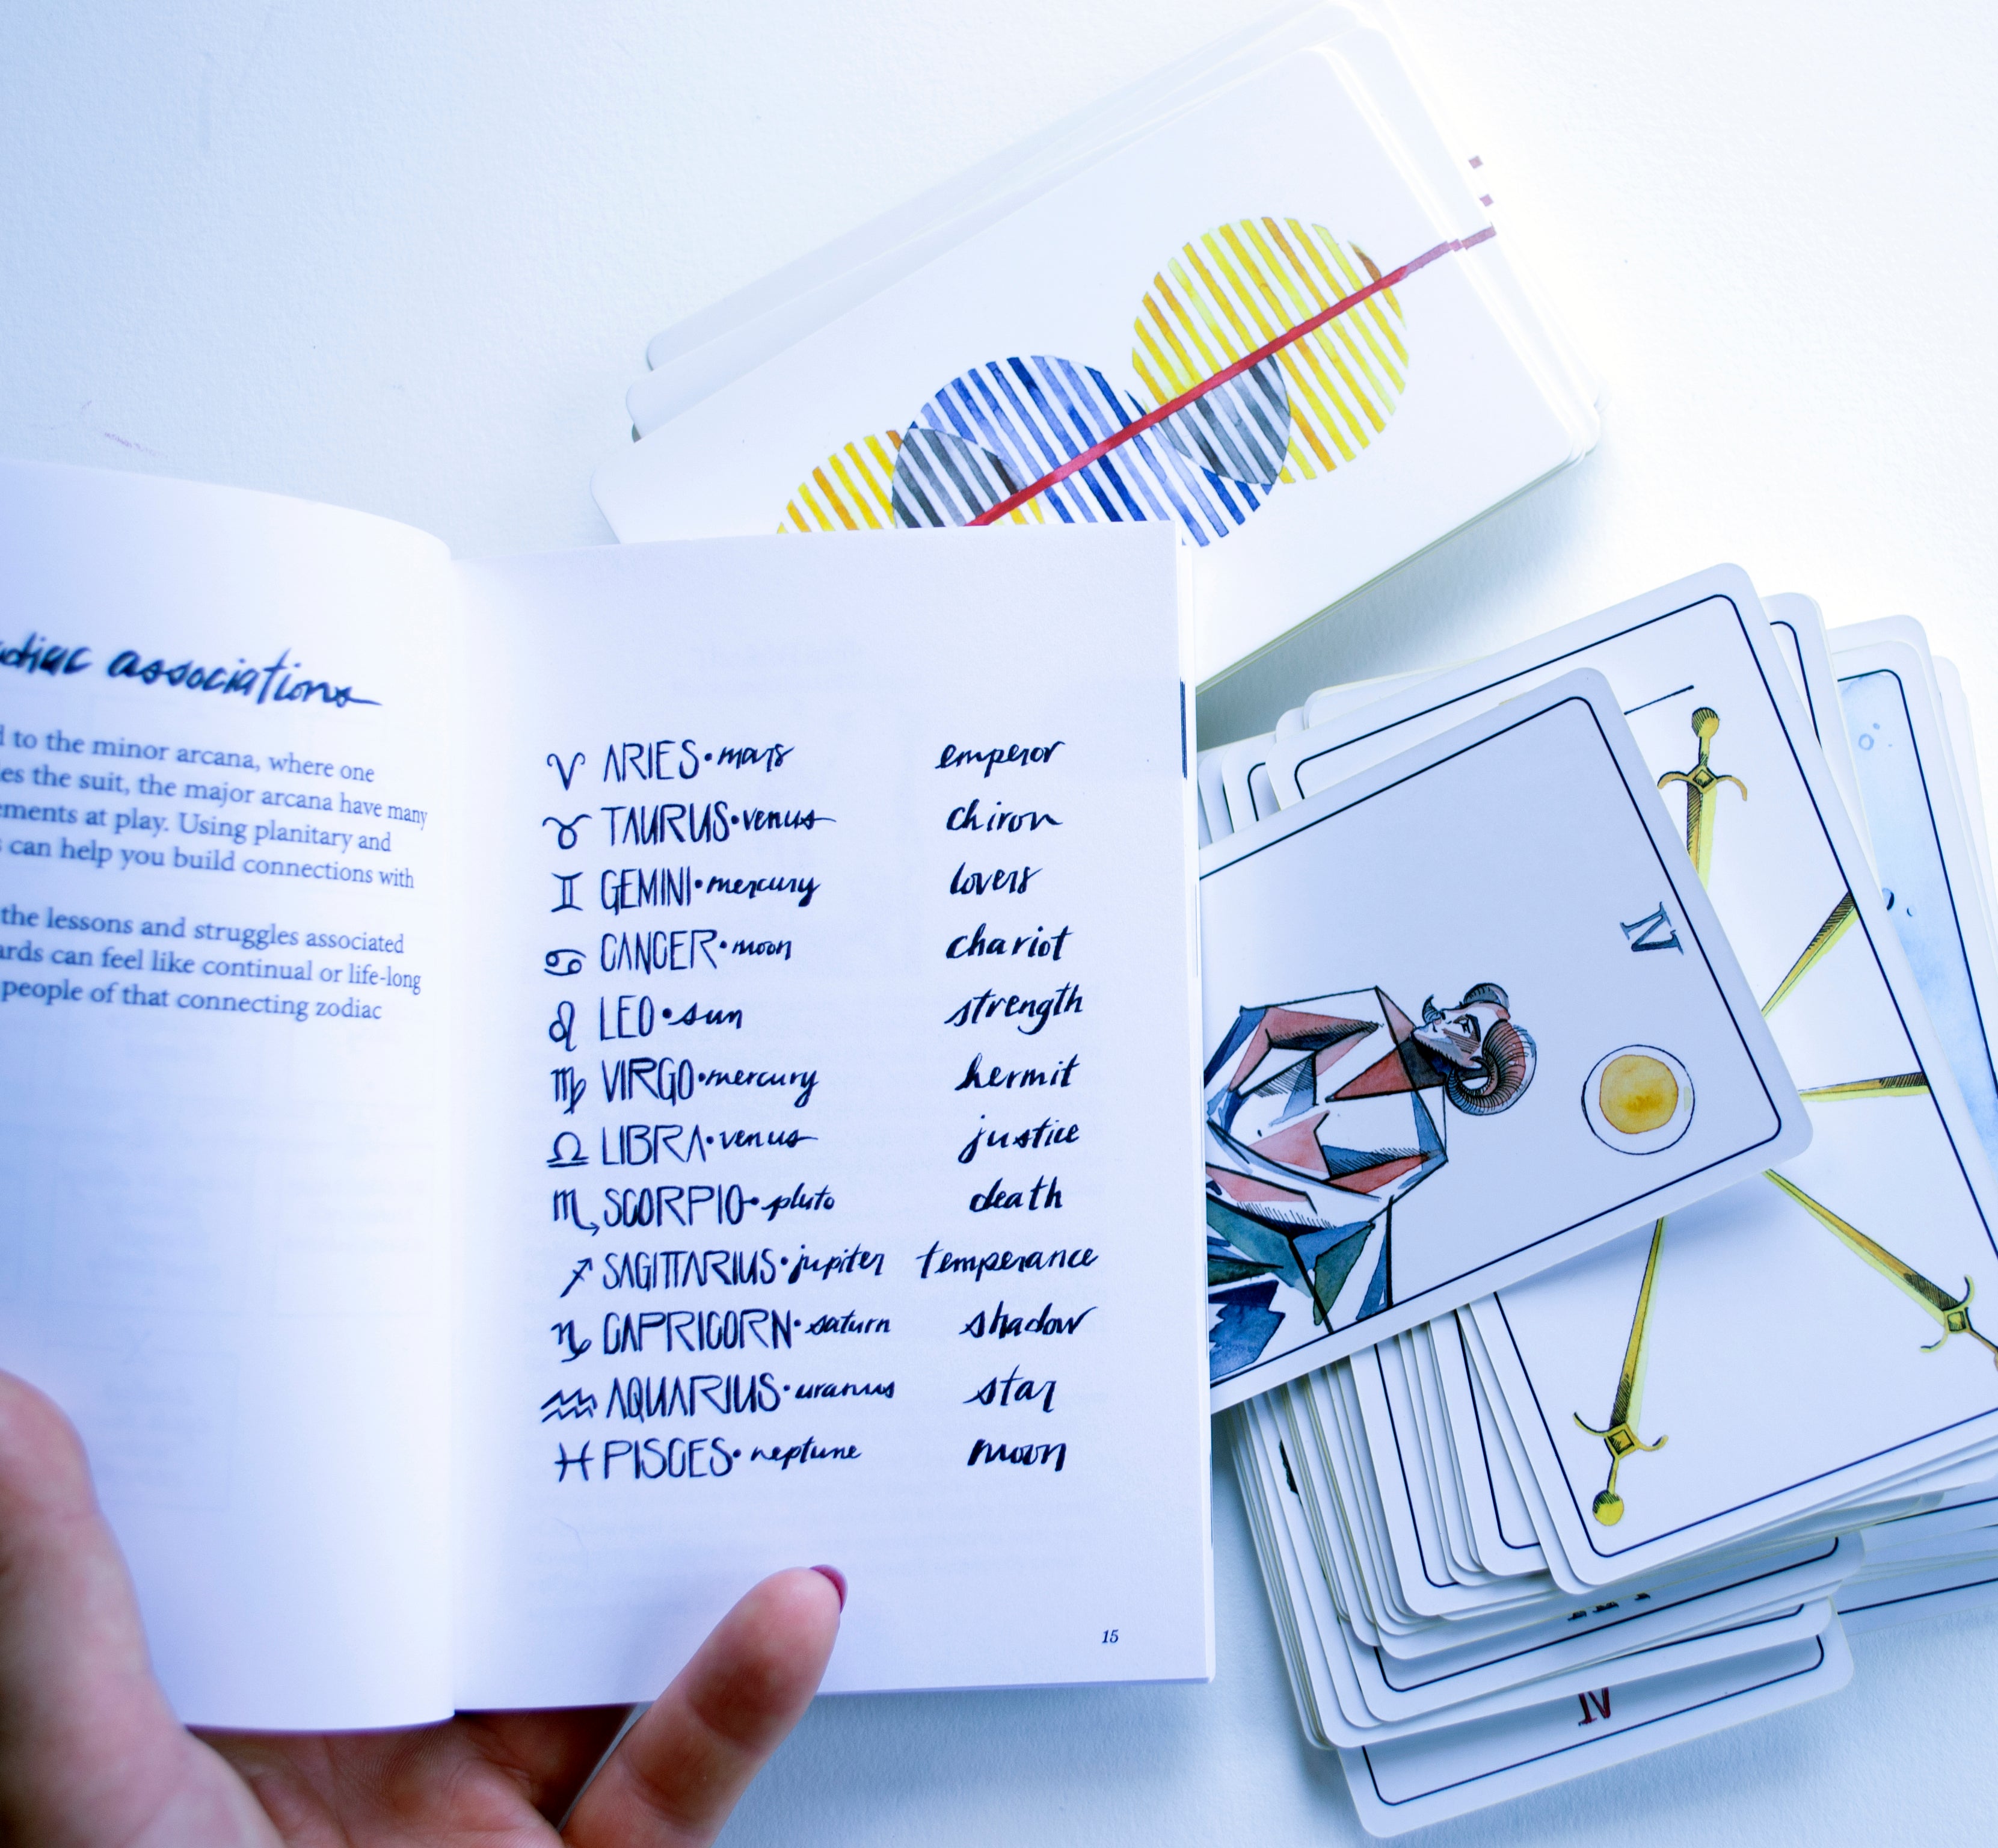 associations
to the minor arcana, where one
the suit, the major arcana have many
at play. Using planitary and
can help you build connections with
the lessons and struggles associated
can feel like continual or life-long
people of that connecting zodiac
♈ ARIES • mars emperor
♉ TAURUS • venus chiron
♊ GEMINI • mercury lovers
♋ CANCER • moon chariot
♌ LEO • sun strength
♍ VIRGO • mercury hermit
♎ LIBRA • venus justice
♏ SCORPIO • pluto death
♐ SAGITTARIUS • jupiter temperance
♑ CAPRICORN • saturn shadow
♒ AQUARIUS • uranus star
♓ PISCES • neptune moon
15
IV
I
IV